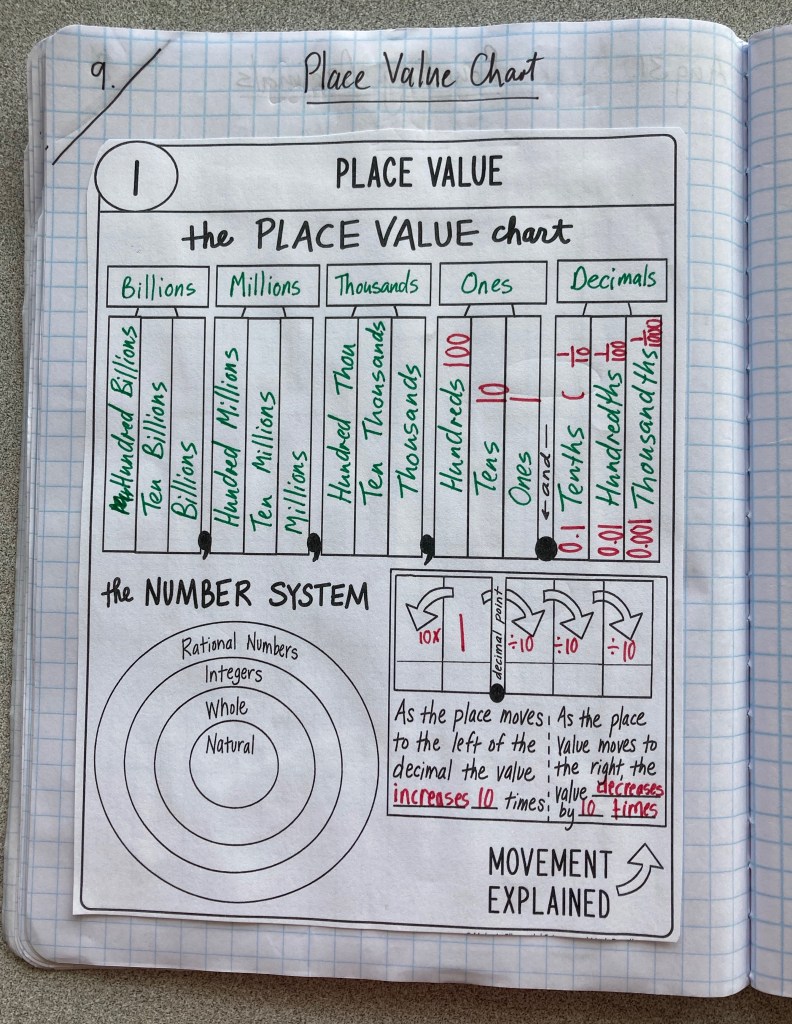 9.
Place Value Chart
1
PLACE VALUE
the PLACE VALUE chart
Billions
Millions
Thousands
Ones
Decimals
Hundred Billions
Ten Billions
Billions
,
Hundred Millions
Ten Millions
Millions
,
Hundred Thou
Ten Thousands
Thousands
,
Hundreds 100
Tens 10
Ones 1
←and—
0.1 Tenths ( 1/10
0.01 Hundredths 1/100
0.001 Thousandths 1/1000
the NUMBER SYSTEM
Rational Numbers
Integers
Whole
Natural
10x
1
decimal point
÷10
÷10
÷10
As the place moves
to the left of the
decimal the value
increases 10 times.
As the place
value moves to
the right, the
value decreases
by 10 times
MOVEMENT
EXPLAINED